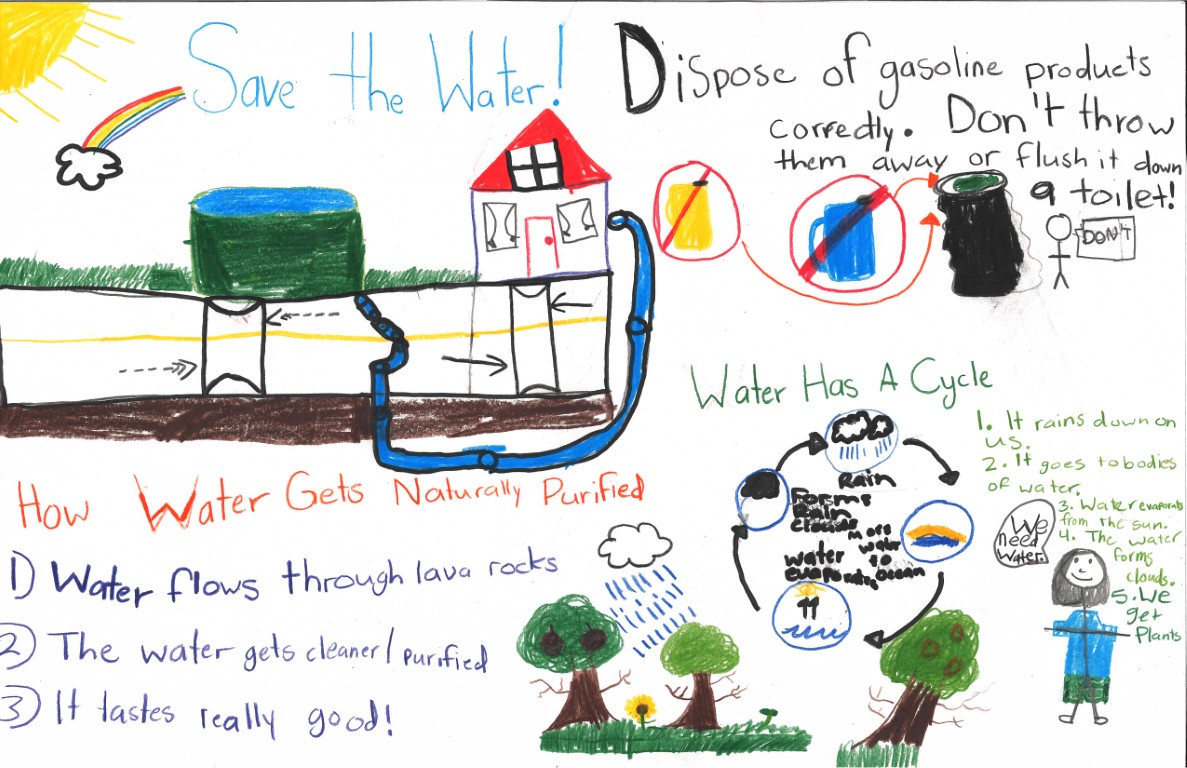 Save the Water!
Dispose of gasoline products
correctly. Don't throw
them away or flush it down
a toilet!
DON'T
How Water Gets Naturally Purified
1) Water flows through lava rocks
2) The water gets cleaner/purified
3) It tastes really good!
Water Has A Cycle
Rain
Forms
Rain
clouds
More
water
to
ocean
water
evaporating
1. It rains down on
us.
2. It goes to bodies
of water.
3. Water evaporats
from the sun.
4. The water
forms
clouds.
5. We
get
Plants
We
need
Water.